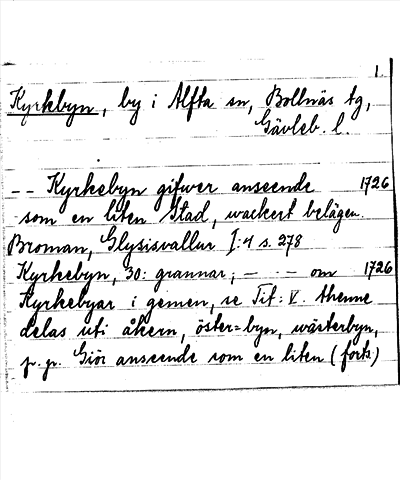 1.
Kyrkbyn, by i Alfta sn, Bollnäs tg,
Gävleb. l.
-- Kyrkebyn gifwer anseende 1726
som en liten Stad, wackert belägen.
Broman, Glysisvallur I:4 s. 278
Kyrkebyn, 30: grannar, - -- om 1726
Kyrkebyar i gemen, se Tit: V. thenne
delas uti åkern, öster=byn, wästerbyn,
p. p. Giör anseende som en liten (forts)